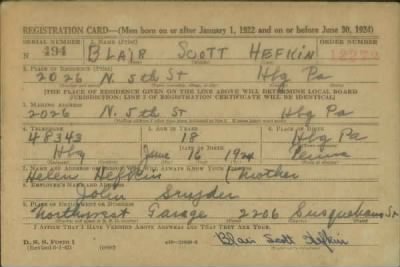 REGISTRATION CARD—(Men born on or after January 1, 1922 and on or before June 30, 1924)
SERIAL NUMBER 1. NAME (Print) ORDER NUMBER
N 494 BLAIR SCOTT HEFKIN
2. PLACE OF RESIDENCE (Print)
2026 N. 5th St Hbg Pa
[THE PLACE OF RESIDENCE GIVEN ON THE LINE ABOVE WILL DETERMINE LOCAL BOARD
JURISDICTION; LINE 2 OF REGISTRATION CERTIFICATE WILL BE IDENTICAL]
3. MAILING ADDRESS
2026 N. 5th St Hbg Pa
4. TELEPHONE 5. AGE IN YEARS 6. PLACE OF BIRTH
48343 18 Hbg Pa
Hbg June 16 1924 Penna
7. NAME AND ADDRESS OF PERSON WHO WILL ALWAYS KNOW YOUR ADDRESS
Helen Hefkin (mother
8. EMPLOYER'S NAME AND ADDRESS
John Snyder
9. PLACE OF EMPLOYMENT OR BUSINESS
Northwest Garage 2206 Susquehanna St
I AFFIRM THAT I HAVE VERIFIED ABOVE ANSWERS AND THAT THEY ARE TRUE.
D. S. S. FORM 1 Blair Scott Hefkin